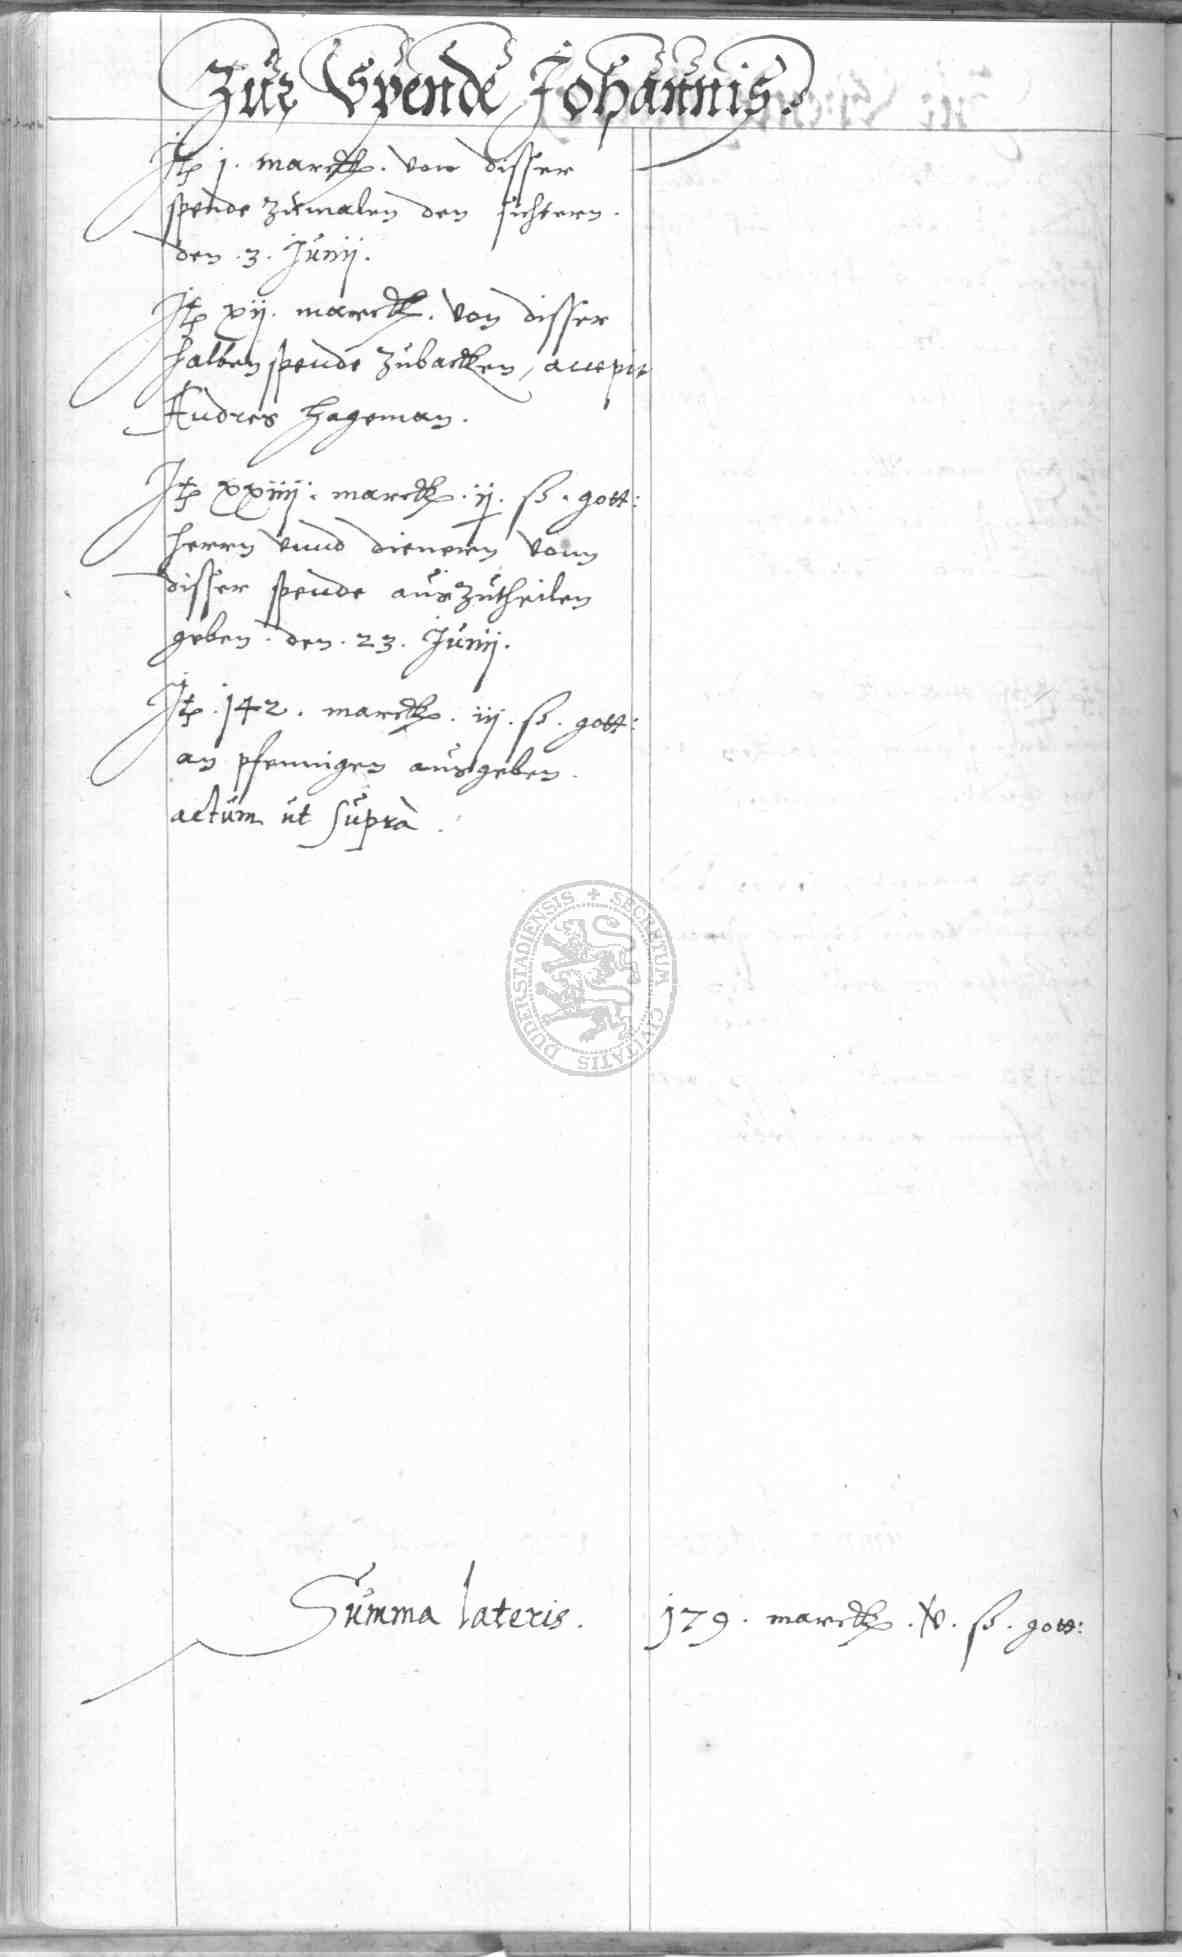 Zur Spende Johannis.
Jtẽ j. marck. von disser
spende zumalen den sichtern.
den .3. Junij.
Jtẽ xij. marck. von disser
halben spende zubacken, accepit
Andres Hageman.
Jtẽ xxiiij. marck. ij. ß. gott:
herrn vnnd dienern vonn
disser spende auszutheilen
geben. den. 23. Junij.
Jtẽ .142. marck. iij. ß. gott:
an pfennigen ausgeben.
actum ut supra.
SECRETUM CIVITATIS DUDERSTADIENSIS
Summa lateris. 179. marck. ß. gott: